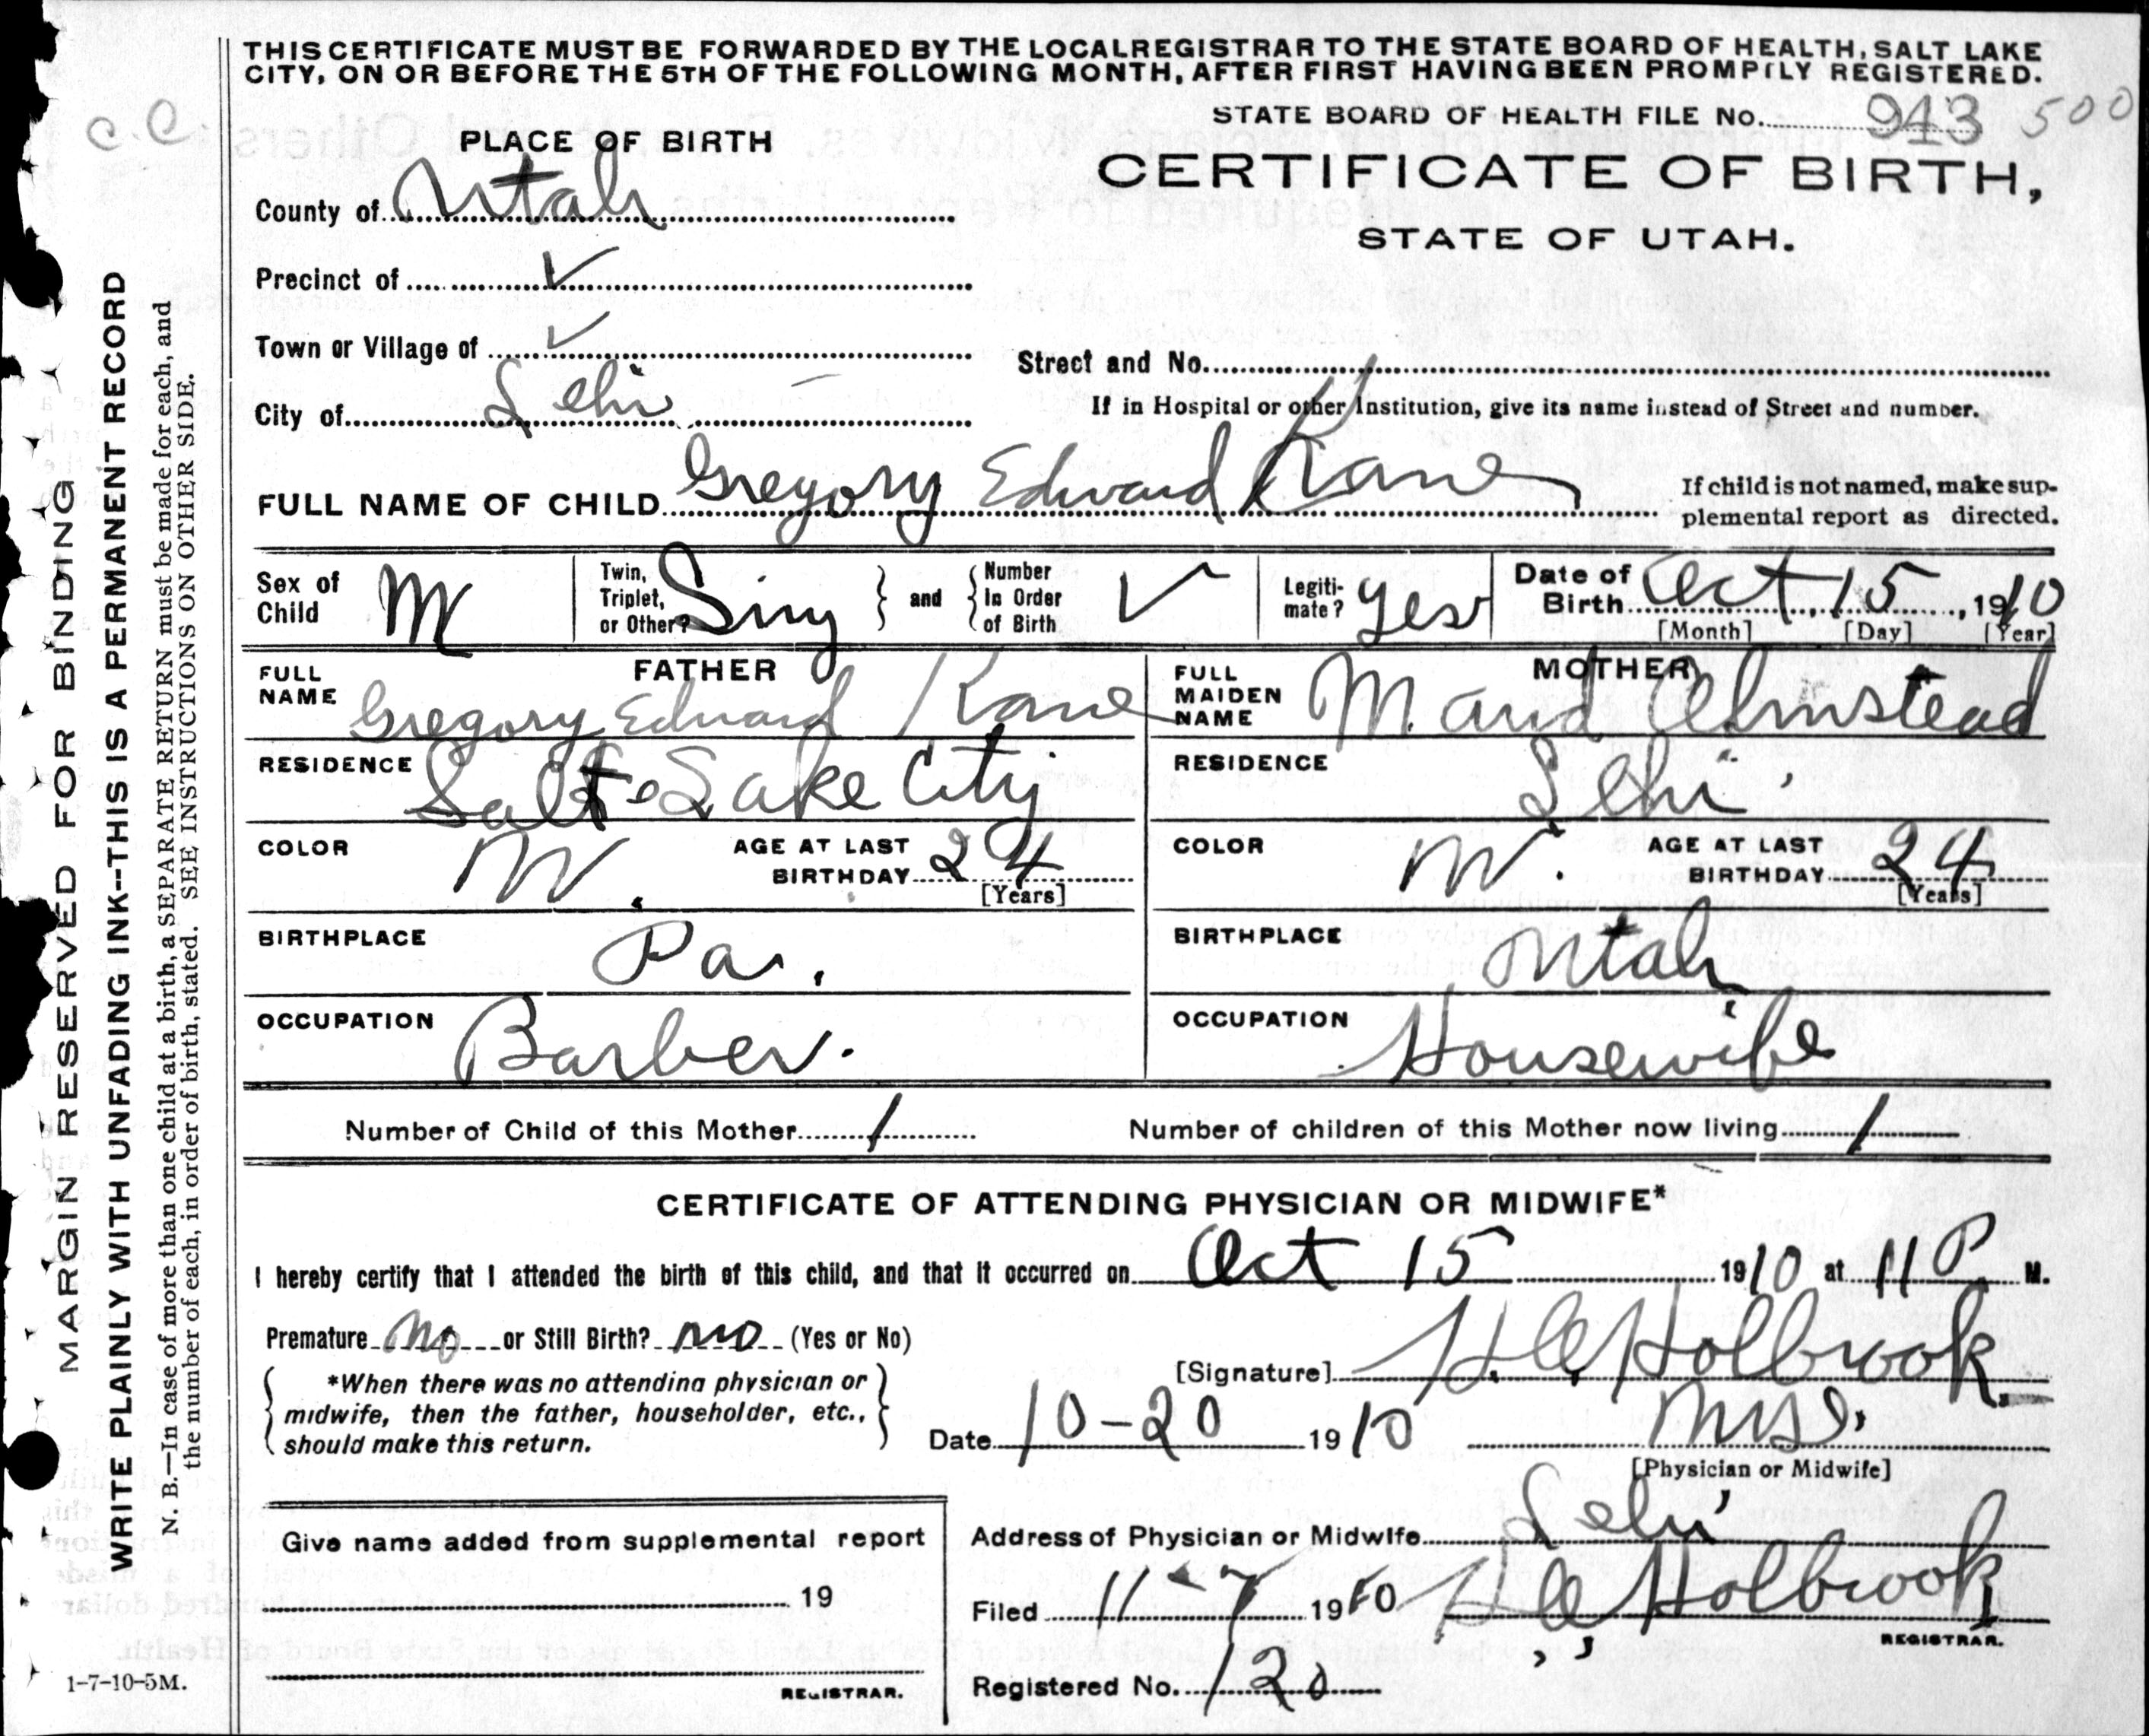 THIS CERTIFICATE MUST BE FORWARDED BY THE LOCAL REGISTRAR TO THE STATE BOARD OF HEALTH, SALT LAKE
CITY, ON OR BEFORE THE 5TH OF THE FOLLOWING MONTH, AFTER FIRST HAVING BEEN PROMPTLY REGISTERED.
STATE BOARD OF HEALTH FILE No. 943 500
PLACE OF BIRTH
CERTIFICATE OF BIRTH,
STATE OF UTAH.
County of Utah
Precinct of ✓
Town or Village of ✓
Street and No.
City of Lehi
If in Hospital or other Institution, give its name instead of Street and number.
FULL NAME OF CHILD Gregory Edward Kane
If child is not named, make sup-
plemental report as directed.
Sex of Child M
Twin, Triplet, or Other? Sing
and Number In Order of Birth ✓
Legiti-mate? Yes
Date of Birth Oct 15, 1910
[Month] [Day] [Year]
FATHER
FULL NAME Gregory Edward Kane
RESIDENCE Salt Lake City
COLOR W. AGE AT LAST BIRTHDAY 24
[Years]
BIRTHPLACE Pa.
OCCUPATION Barber.
MOTHER
FULL MAIDEN NAME Maud Olmstead
RESIDENCE Lehi
COLOR W. AGE AT LAST BIRTHDAY 24
[Years]
BIRTHPLACE Utah
OCCUPATION Housewife
Number of Child of this Mother 1 Number of children of this Mother now living 1
CERTIFICATE OF ATTENDING PHYSICIAN OR MIDWIFE*
I hereby certify that I attended the birth of this child, and that it occurred on Oct 15 1910 at 11 P M.
Premature No or Still Birth? No (Yes or No)
[Signature] Holbrook
*When there was no attending physician or
midwife, then the father, householder, etc.,
should make this return.
Date 10-20 1910
[Physician or Midwife]
Give name added from supplemental report
19
REGISTRAR.
Address of Physician or Midwife Lehi
Filed 11-7 1910 Holbrook
REGISTRAR.
Registered No. 120
MARGIN RESERVED FOR BINDING
WRITE PLAINLY WITH UNFADING INK--THIS IS A PERMANENT RECORD
N. B.—In case of more than one child at a birth, a SEPARATE RETURN must be made for each, and
the number of each, in order of birth, stated. SEE INSTRUCTIONS ON OTHER SIDE.
1-7-10-5M.